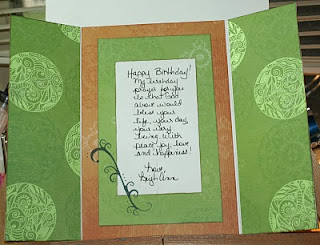 Happy Birthday!
My birthday
prayer for you
is that God
above would
bless your
life, your day,
your very
being with
peace, joy, love
and happiness!
Love,
Leigh Ann